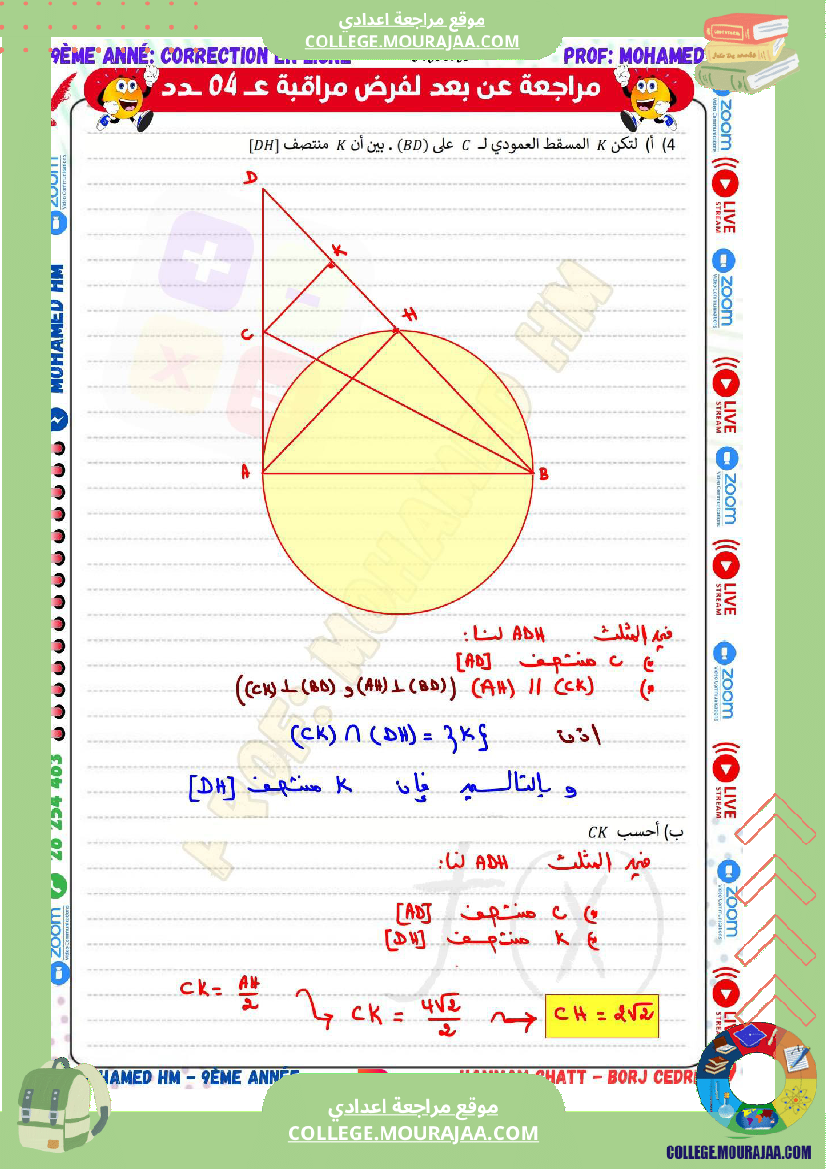 موقع مراجعة اعدادي
COLLEGE.MOURAJAA.COM
9ÈME ANNÉ: CORRECTION EN LIGNE
PROF: MOHAMED
مراجعة عن بعد لفرض مراقبة عـ 04 ـدد
4) أ) لتكن K المسقط العمودي لـ C على (BD) . بين أن K منتصف [DH]
D
K
H
C
A
B
في المثلث ADH لنا:
C منتصف [AD]
(AH) // (CK) ((CK)⊥(BD) و (AH)⊥(BD))
اذن (CK) ∩ (DH) = {K}
و بالتالي فإن K منتصف [DH]
ب) أحسب CK
في المثلث ADH لنا:
C منتصف [AD]
K منتصف [DH]
CK = AH/2
CK = 4√2/2
CH = 2√2
PROF: MOHAMED HM
MOHAMED HM
28 254 403
zoom
Video Communications
LIVE
STREAM
zoom
Video Communications
LIVE
STREAM
zoom
Video Communications
LIVE
STREAM
zoom
Video Communications
LIVE
STREAM
zoom
Video Communications
LIVE
HAMED HM – 9ÈME ANNÉE
HAMMAM CHATT – BORJ CEDRI
موقع مراجعة اعدادي
COLLEGE.MOURAJAA.COM
COLLEGE.MOURAJAA.COM